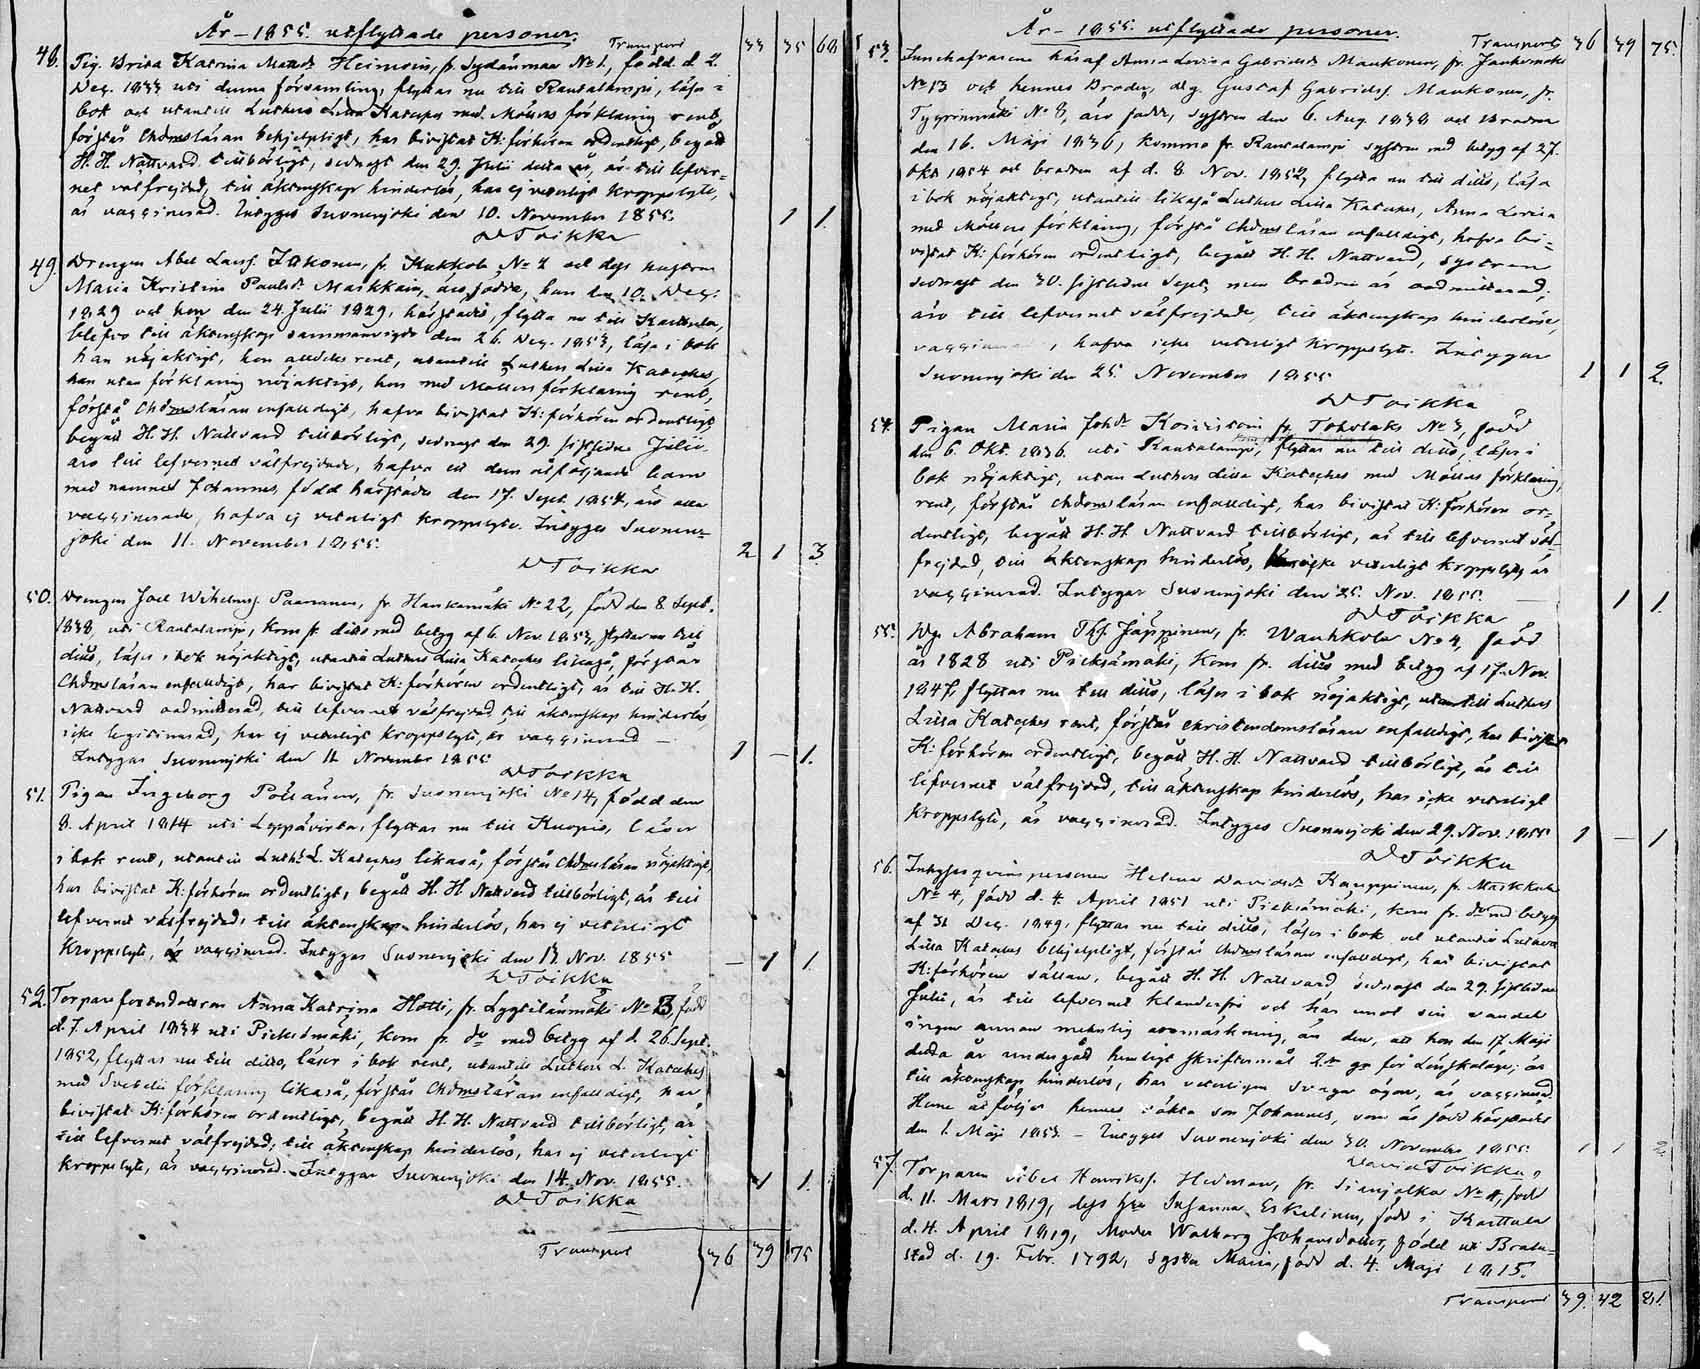 År - 1855. utflyttade personer.
Transport 33 35 68
48. Pig. Brita Katrina Mattsdr Heinonin, fr. Sydänmaa No 1, född d. 2.
Dec. 1833 uti denna församling, flyttar nu till Rautalampi, läser i
bok och utantill Lutheri Lilla Kateches med Möllers förklaring rent,
förstår Chdmsläran behjelpligt, har bivistat K: förhören ordentligt, begått
H. H. Nattvard tillbörligt, sednast den 29. Julii detta år, är till lefver-
net välfrejdad, till äktenskap hinderlös, har ej veterligt kroppslyte,
är vaccinerad. Intygar Suonenjoki den 10. November 1855. 1 1.
D Toikka
49. Drengen Abel Larsf. Jakonen, fr. Kukkola No 2 och dess hustru
Maria Kristina Paulsdr Markkain, äro födde, han den 10. Dec.
1829 och hon den 24. Julii 1829, härstädes, flytta nu till Karttula,
blefvo till äktenskap sammanvigde den 26. Dec. 1853, läsa i bok
han nöjaktigt, hon alldeles rent, utantill Luthers Lilla Kateches,
han utan förklaring nöjaktigt, hon med Möllers förklaring rent,
förstå Chdmsläran enfalldigt, hafva bivistat K: förhören ordentligt,
begått H. H. Nattvard tillbörligt, sednast den 29. sistlidne Julii,
äro till lefvernet välfrejdade, hafva ett dem åtföljande barn
med namnet Johannes, född härstädes den 17. Sept. 1854, äro alla
vaccinerade, hafva ej veterligt kroppslyte. Intygar Suonen-
joki den 11. November 1855. 2 1 3
D Toikka
50. Drengen Joel Wilhelmsf. Paananen, fr. Hankamäki No 22, född den 8 Sept.
1838, uti Rautalampi, kom fr. ditto med betyg af 6. Nov. 1853, flyttar nu till
ditto, läser i bok nöjaktigt, utantill Luthers Lilla Kateches likaså, förstår
Chdmsläran enfalldigt, har bivistat K: förhören ordentligt, är till H. H.
Nattvard oadmitterad, till lefvernet välfrejdad, till äktenskap hinderlös,
icke legitimerad, har ej veterligt kroppslyte, är vaccinerad —
Intygar Suonenjoki den 11 November 1855 1 — 1.
D Toikka
51. Pigan Ingeborg Pöllänen, fr. Suonenjoki No 14, född den
8. April 1814 uti Leppävirta, flyttar nu till Kuopio, läser
i bok rent, utantill Luths L. Kateches likaså, förstår Chdmsläran nöjaktigt,
har bivistat K: förhören ordentligt, begått H. H. Nattvard tillbörligt, är till
lefvernet välfrejdad, till äktenskap hinderlös, har ej veterligt
kroppslyte, är vaccinerad. Intygar Suonenjoki den 13. Nov. 1855 — 1 1.
D Toikka
52. Torparefosterdottren Anna Katrina Hotti, fr. Lyytilänmäki No 13, född
d. 7. April 1834 uti Pieksämäki, kom fr. do med betyg af d. 26. Sept.
1852, flyttar nu till ditto, läser i bok rent, utantill Lutheri L. Kateches
med Svebelii förklaring likaså, förstår Chdmsläran enfalldigt, har
bivistat K: förhören ordentligt, begått H. H. Nattvard tillbörligt, är
till lefvernet välfrejdad, till äktenskap hinderlös, har ej veterligt
kroppslyte, är vaccinerad. Intygar Suonenjoki den 14. Nov. 1855. 1 1.
D Toikka
Transport 36 39 75
År - 1855. utflyttade personer.
Transport 36 39 75.
53. Anna Lovisa Gabrielsdr Maukonen, fr.
No 13 och hennes Broder, drg. Gustaf Gabrielsf. Maukonen, fr.
Tyyrinmäki No 8, äro födde, systren den 6. Aug. 1838 och Brodren
den 16. Maji 1836, kommo fr. Rautalampi systren med betyg af 27.
Okt. 1854 och brodren af d. 8. Nov. 1852, flytta nu till ditto, läsa
i bok nöjaktigt, utantill likaså Luthers Lilla Kateches, Anna Lovisa
med Möllers förklaring, förstå Chdmsläran enfalldigt, hafva bi-
vistat K: förhören ordentligt, begått H. H. Nattvard, systren
sednast den 30. sistlidne Sept. men brodren är oadmitterad,
äro till lefvernet välfrejdade, till äktenskap hinderlöse,
, hafva icke veterligt kroppslyte. Intygar
Suonenjoki den 25. November 1855 1 1 2.
D Toikka
54. Pigan Maria Johdr Koivistoin fr. Toholaks No 3, född
den 6. Okt. 1836. uti Rautalampi, flyttar nu till ditto, läser i
bok nöjaktigt, utan Luthers Lilla Kateches med Möllers förklaring,
rent, förstår chdomsläran enfalldigt, har bivistat K: förhören or-
dentligt, begått H. H. Nattvard tillbörligt, är till lefvernet väl-
frejdad, till äktenskap hinderlös, har icke veterligt kroppslyte, är
vaccinerad. Intygar Suonenjoki den 25. Nov. 1855. — 1 1.
D Toikka
55. Drg. Abraham Thsf. Jäppinen, fr. Wanhkola No 4, född
år 1828 uti Pieksämäki, kom fr. ditto med betyg af 17. Nov.
1847, flyttar nu till ditto, läser i bok nöjaktigt, utantill Luthers
Lilla Kateches rent, förstår christendomsläran enfalldigt, har bivistat
K: förhören ordentligt, begått H. H. Nattvard tillbörligt, är till
lefvernet välfrejdad, till äktenskap hinderlös, har icke veterligt
kroppslyte, är vaccinerad. Intygar Suonenjoki den 29. Nov. 1855 1 — 1
D Toikka
56. Inhyses qvins personen Helena Davidsdr Kauppinen, fr. Markkala
No 4, född d. 4. April 1851 uti Pieksämäki, kom fr. do med betyg
af 31 Dec. 1849, flyttar nu till ditto, läser i bok och utantill Lutheri
Lilla Kateches behjelpligt, förstår Chdmsläran enfalldigt, har bivistat
K: förhören sällan, begått H. H. Nattvard, sednast den 29. sistlidne
Julii, är till lefvernet klanderfri och har emot sin vandel
ingen annan anmärkning, än den, att hon den 17. Maji
detta år undergått hemligt skriftermål 2:dra gr för Lönskaläge, är
till äktenskap hinderlös, har veterligen svaga ögon, är vaccinerad.
Henne åtföljer hennes oäkta son Johannes, som är född härstädes
den 1. Maji 1853. — Intygar Suonenjoki den 30. November 1855. 1 1 2.
David Toikka
57. Torparen Abel Henriksf. Hedman, fr. Sianjalka No 4, född
d. 11. Mars 1819, dess hu Susanna Eskelinen, född i Karttula
d. 4. April 1819, Moder Walborg Johansdotter, född uti Brahe-
stad d. 19. Febr. 1792, syster Maria, född d. 4. Maji 1815.
Transport 39. 42 81.